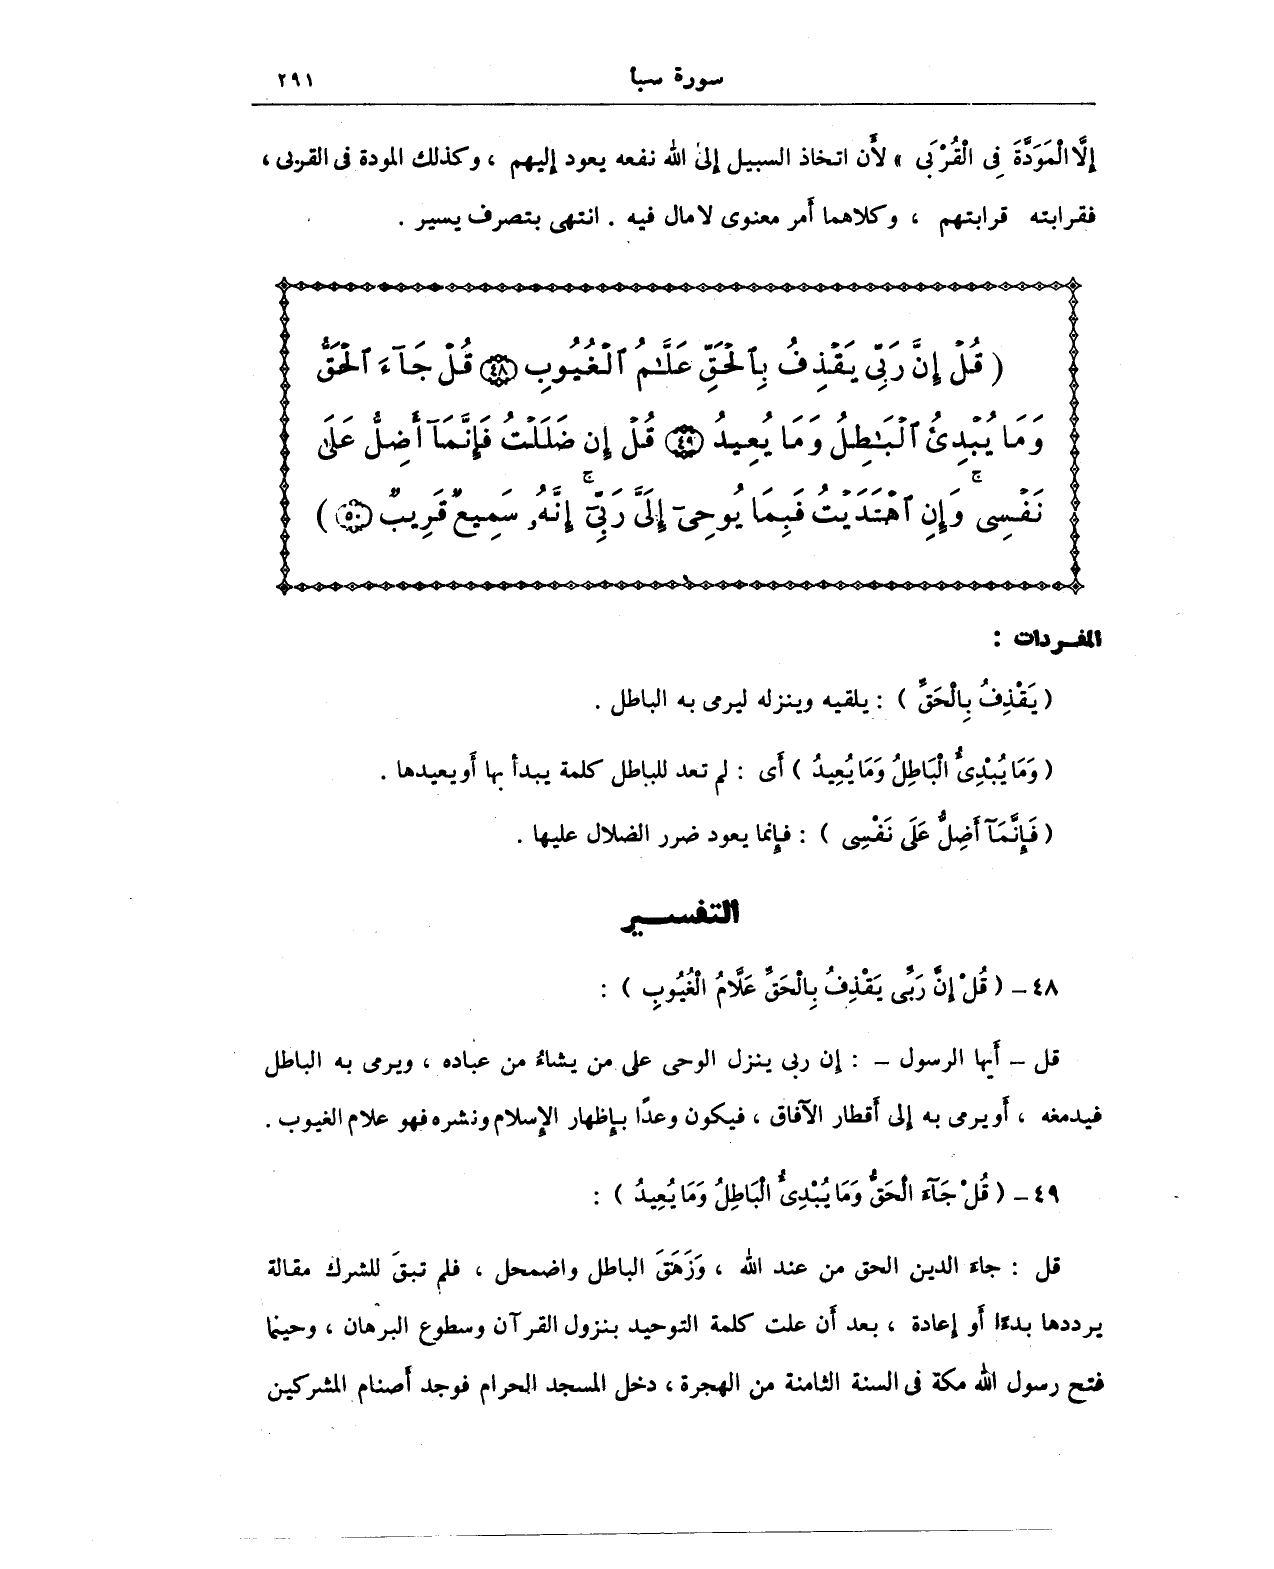 سورة سبأ ٢٩١
إِلَّا الْمَوَدَّةَ فِى الْقُرْبَى » لأَن اتخاذ السبيل إلى الله نفعه يعود إليهم ، وكذلك المودة فى القربى ،
فقرابته قرابتهم ، وكلاهما أَمر معنوى لامال فيه . انتهى بتصرف يسير .
( قُلْ إِنَّ رَبِّى يَقْذِفُ بِٱلْحَقِّ عَلَّٰمُ ٱلْغُيُوبِ ٤٨ قُلْ جَآءَ ٱلْحَقُّ
وَمَا يُبْدِئُ ٱلْبَٰطِلُ وَمَا يُعِيدُ ٤٩ قُلْ إِن ضَلَلْتُ فَإِنَّمَآ أَضِلُّ عَلَىٰ
نَفْسِى ۖ وَإِنِ ٱهْتَدَيْتُ فَبِمَا يُوحِىٓ إِلَىَّ رَبِّىٓ ۚ إِنَّهُۥ سَمِيعٌ قَرِيبٌ ٥٠ )
المفـردات :
( يَقْذِفُ بِالْحَقِّ ) : يلقيه وينزله ليرمى به الباطل .
( وَمَا يُبْدِىُٔ الْبَاطِلُ وَمَا يُعِيدُ ) أَى : لم تعد للباطل كلمة يبدأ بها أَويعيدها .
( فَإِنَّمَآ أَضِلُّ عَلَى نَفْسِى ) : فإنما يعود ضرر الضلال عليها .
التفســـير
٤٨ – ( قُلْ إِنَّ رَبِّى يَقْذِفُ بِالْحَقِّ عَلَّامُ الْغُيُوبِ ) :
قل – أَيها الرسول – : إن ربى ينزل الوحى على من يشاءُ من عباده ، ويرمى به الباطل
فيدمغه ، أَويرمى به إلى أَقطار الآفاق ، فيكون وعدًا بإظهار الإِسلام ونشره فهو علام الغيوب .
٤٩ – ( قُلْ جَآءَ الْحَقُّ وَمَا يُبْدِىُٔ الْبَاطِلُ وَمَا يُعِيدُ ) :
قل : جاء الدين الحق من عند الله ، وَزَهَقَ الباطل واضمحل ، فلم تبقَ للشرك مقالة
يرددها بدءًا أَو إعادة ، بعد أَن علت كلمة التوحيد بنزول القرآن وسطوع البرهان ، وحينما
فتح رسول الله مكة فى السنة الثامنة من الهجرة ، دخل المسجد الحرام فوجد أَصنام المشركين